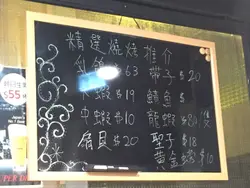 精選燒烤推介
乳鴿 $63
帶子 $20
大蝦 $19
鱔魚 $
中蝦 $10
龍蝦 $80/隻
扇貝 $20
聖子 $18
黃金蠔 $10
$55